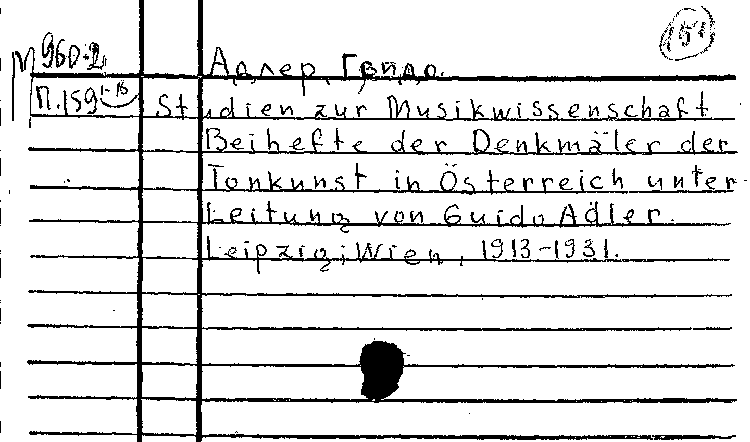 151
М 960-2
Адлер, Гвидо.
П.159 1-18 Studien zur Musikwissenschaft
Beihefte der Denkmäler der
Tonkunst in Österreich unter
Leitung von Guido Adler.
Leipzig; Wien, 1913-1931.